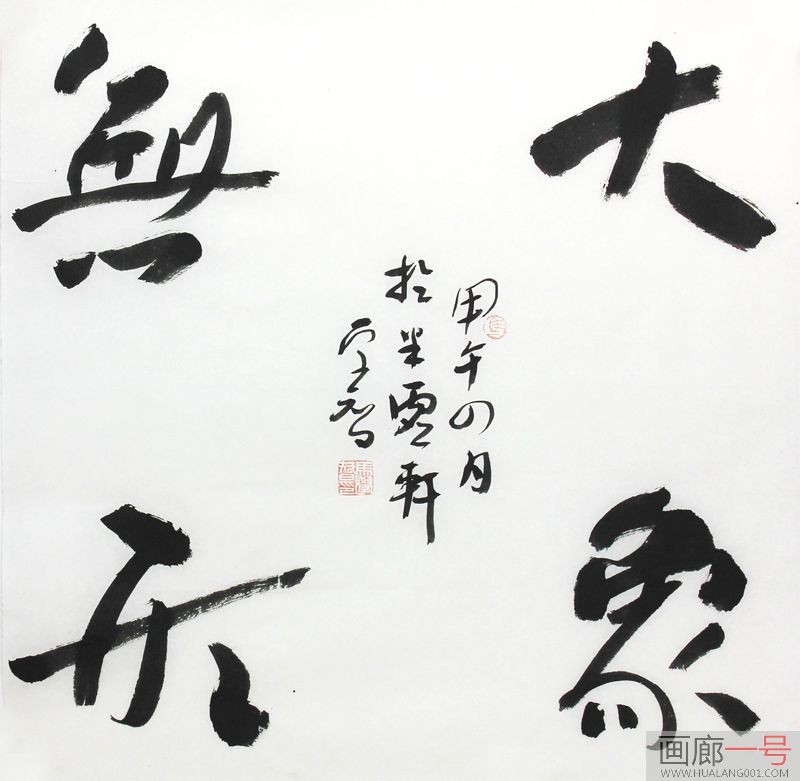 大象
無形
甲午四月
於半軒
画廊一号
WWW.HUALANG001.COM